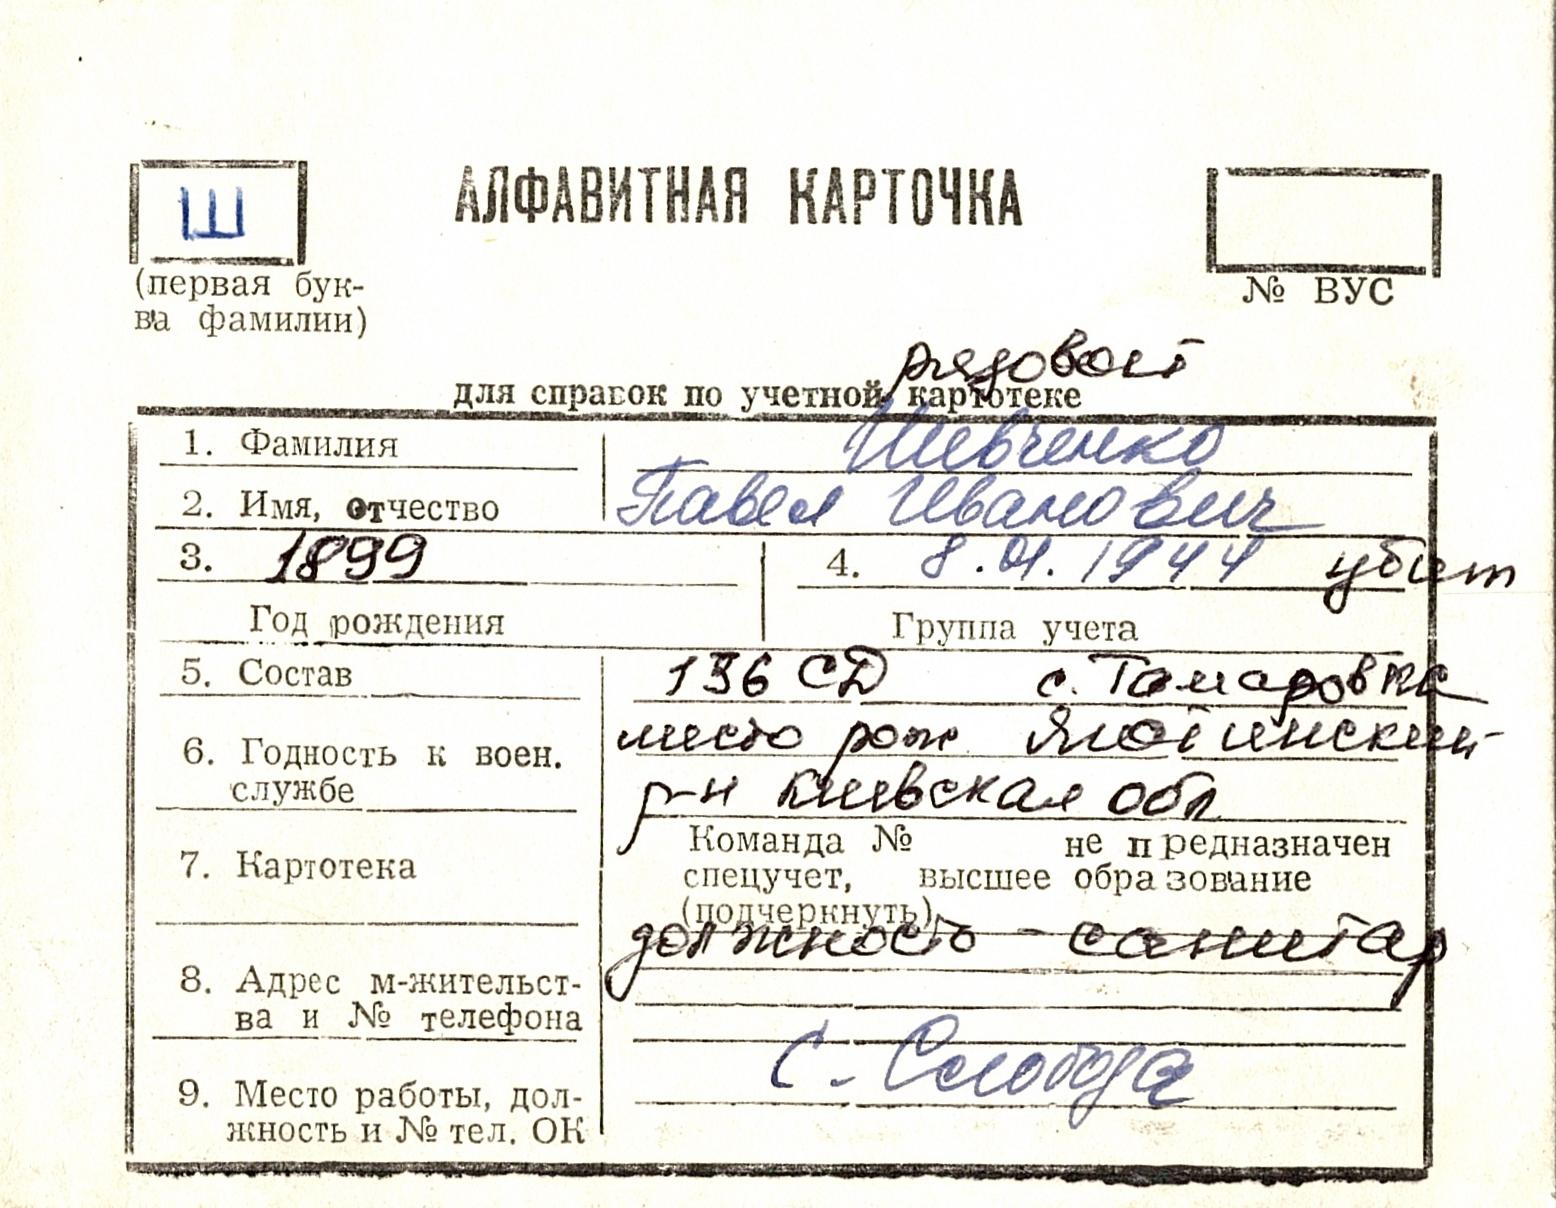 Ш
АЛФАВИТНАЯ КАРТОЧКА
(первая бук-
ва фамилии)
№ ВУС
рядовой
для справок по учетной картотеке
1. Фамилия Шевченко
2. Имя, отчество Павел Иванович
3. 1899 4. 8.01.1944 убит
Год рождения Группа учета
5. Состав 136 СД с. Томаровка
место рож Яготинский
6. Годность к воен.
службе р-н Киевская обл
Команда № не предназначен
7. Картотека спецучет, высшее образование
(подчеркнуть)
должность - санитар
8. Адрес м-жительст-
ва и № телефона
с. Слобода
9. Место работы, дол-
жность и № тел. ОК